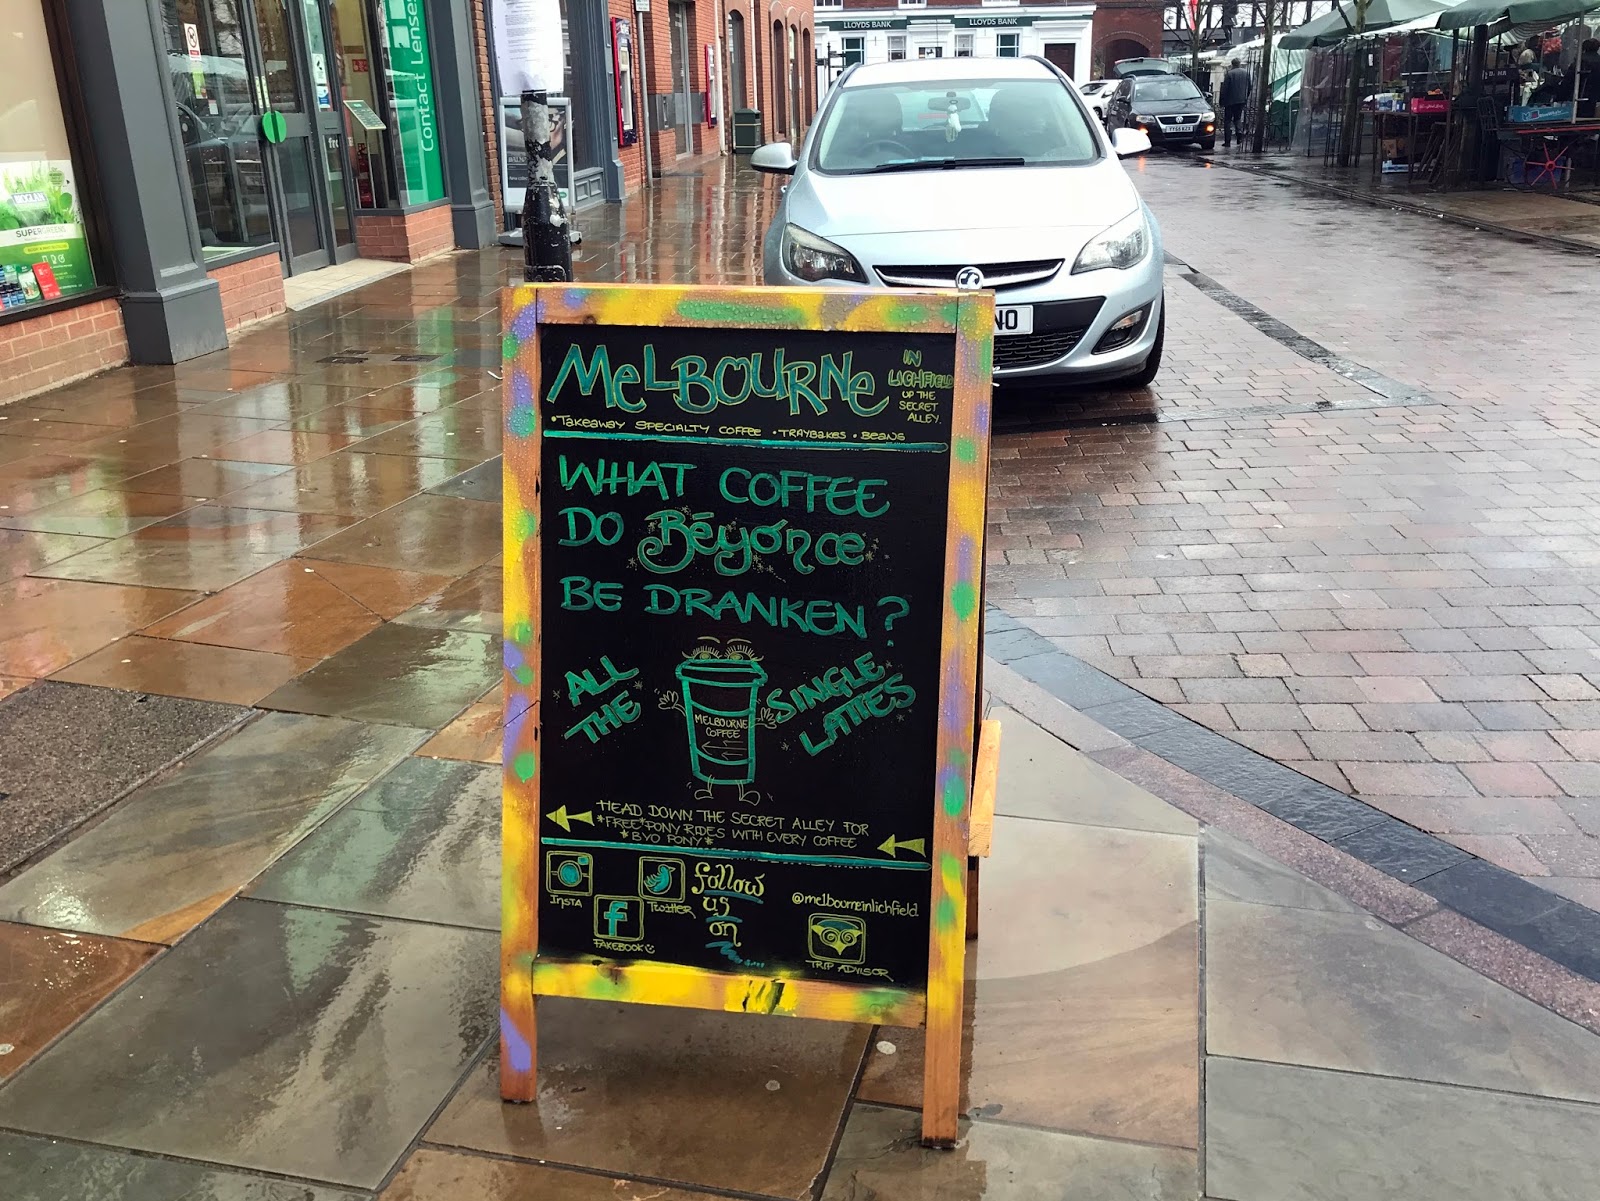 LLOYDS BANK
LLOYDS BANK
Contact Lenses
SUPERGREENS
MELBOURNE
IN
LICHFIELD
UP THE
SECRET
ALLEY.
•TAKEAWAY SPECIALTY COFFEE •TRAYBAKES •BEANS
WHAT COFFEE
DO BéyONCe
BE DRANKEN?
ALL
THE
SINGLE
LATTES
MELBOURNE
COFFEE
HEAD DOWN THE SECRET ALLEY FOR
*FREE*PONY RIDES WITH EVERY COFFEE
*BYO PONY*
INSTA
TWITTER
f
FAKEBOOK
follow
us
on
@melbourneinlichfield
TRIP ADVISOR
NO